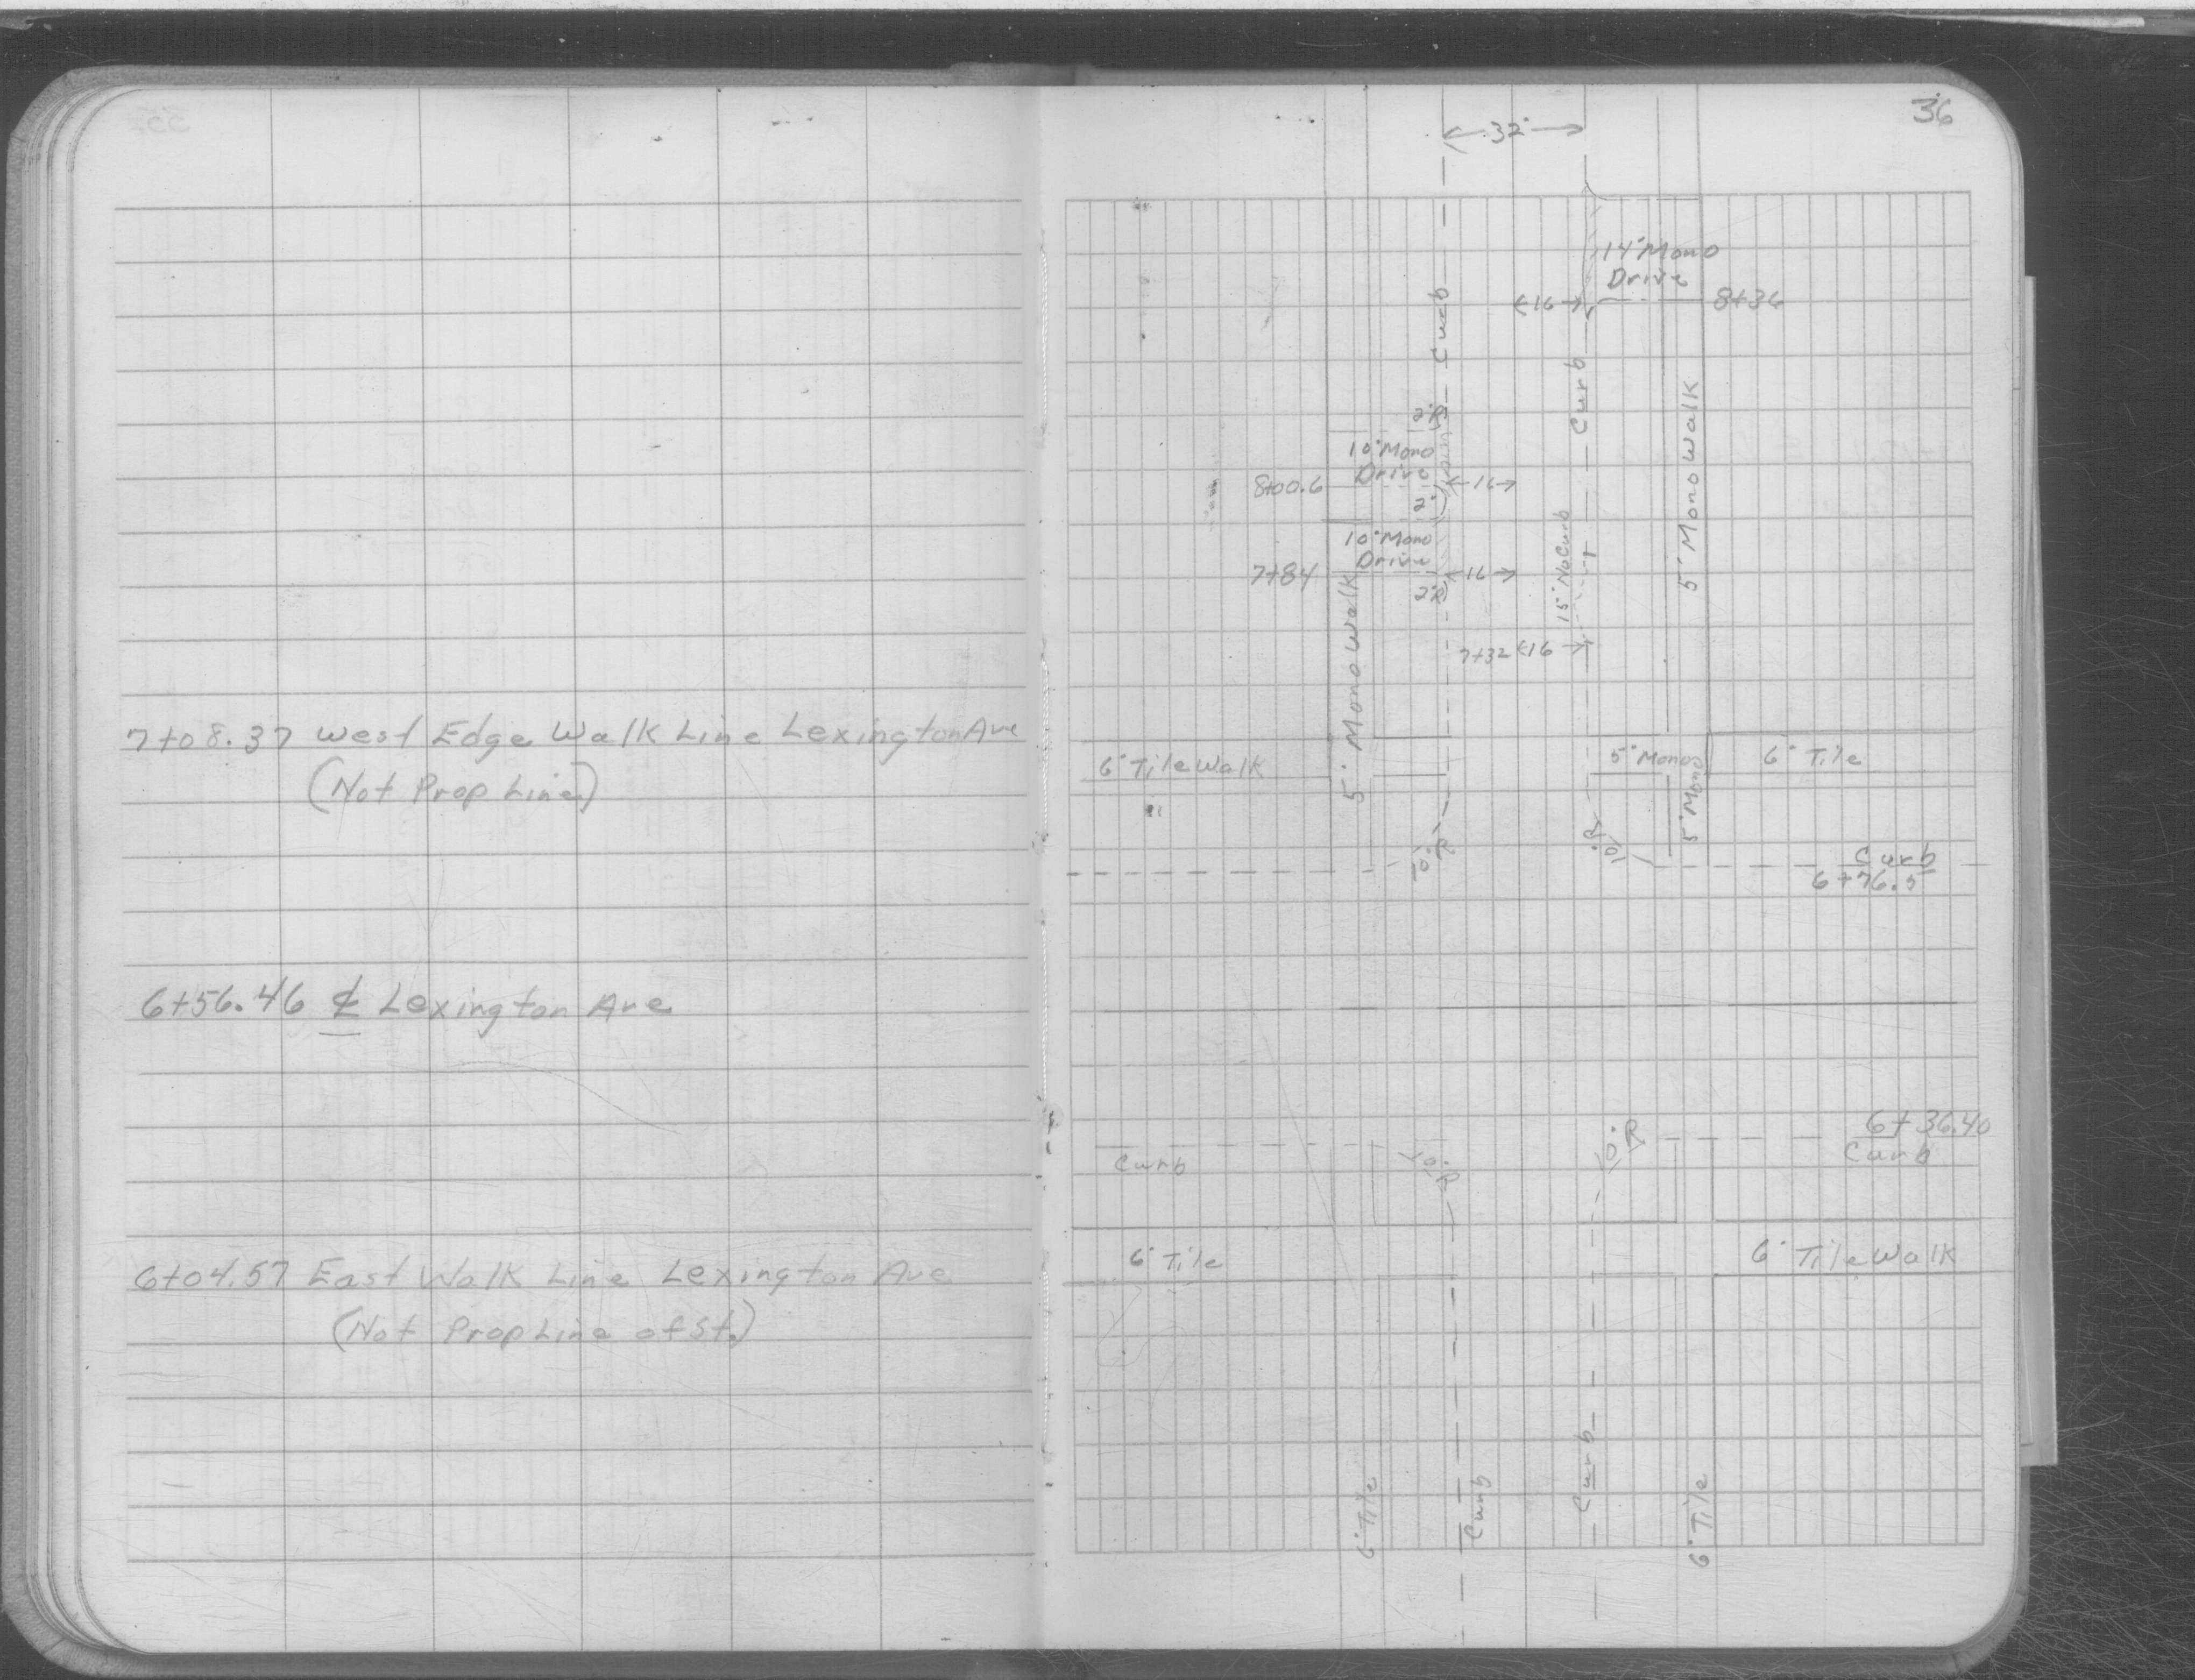 7+08.37 West Edge Walk Line Lexington Ave
(Not Prop Line)
6+56.46 ℄ Lexington Ave
6+04.57 East Walk Line Lexington Ave
(Not Prop Line of St.)
36
32'
14' Mono
Drive
16
8+36
Curb
Curb
5' Mono Walk
2'R
10' Mono
Drive
8+00.6
16
2'
10' Mono
Drive
7+84
16
2'R
15' No Curb
7+32
16
5' Mono Walk
6' Tile Walk
5' Mono
6' Tile
5' Mono
10'R
10'R
Curb
6+76.5
6+36.40
Curb
Curb
10'R
10'R
6' Tile
6' Tile Walk
6' Tile
Curb
Curb
6' Tile